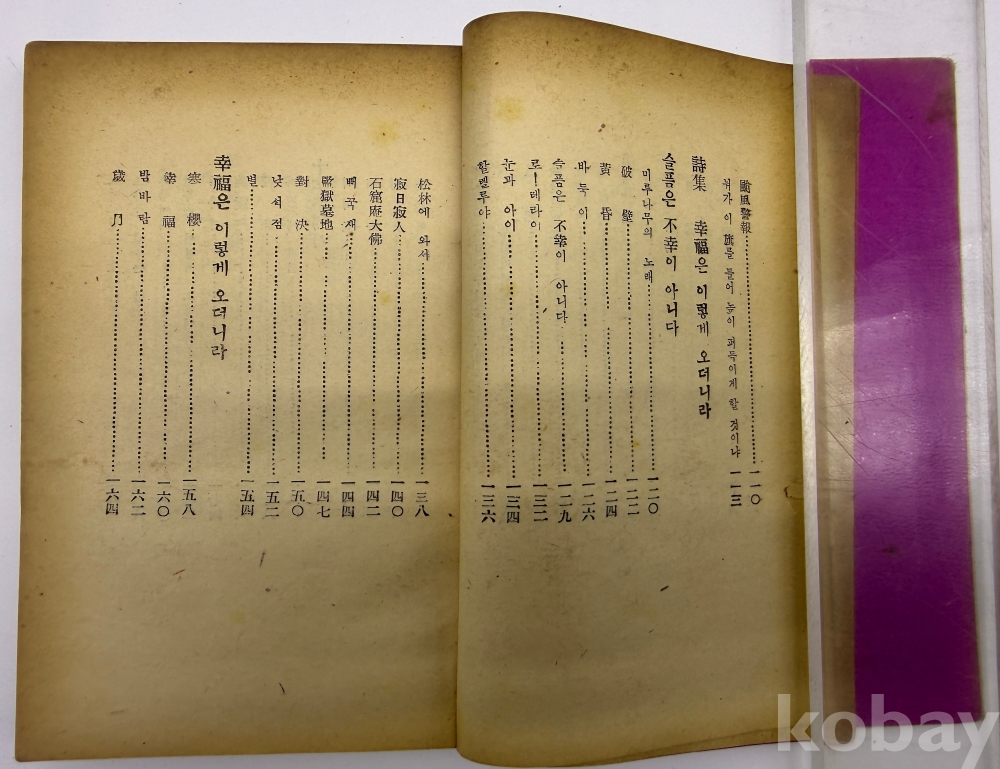 颱風警報 一一〇
뉘가 이 旗를 들어 높이 퍼득이게 할 것이냐 一一三
詩集 幸福은 이렇게 오더니라
슬픔은 不幸이 아니다
미루나무의 노래 一二〇
破璧 一二二
黃昏 一二四
바둑이 一二六
슬픔은 不幸이 아니다 一二九
로!테라이 一三二
눈과 아이 一三四
할렐루야 一三六
松林에 와서 一三八
寂日寂人 一四〇
石窟庵大佛 一四二
뻐꾹재 一四四
監獄墓地 一四七
對決 一五〇
낮석점 一五二
별 一五四
幸福은 이렇게 오더니라
寒櫻 一五八
幸福 一六〇
밤바람 一六二
歲月 一六四
kobay